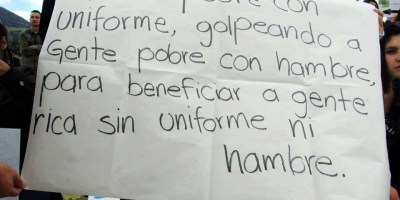 con
uniforme, golpeando a
Gente pobre con hambre,
para beneficiar a gente
rica sin uniforme ni
hambre.